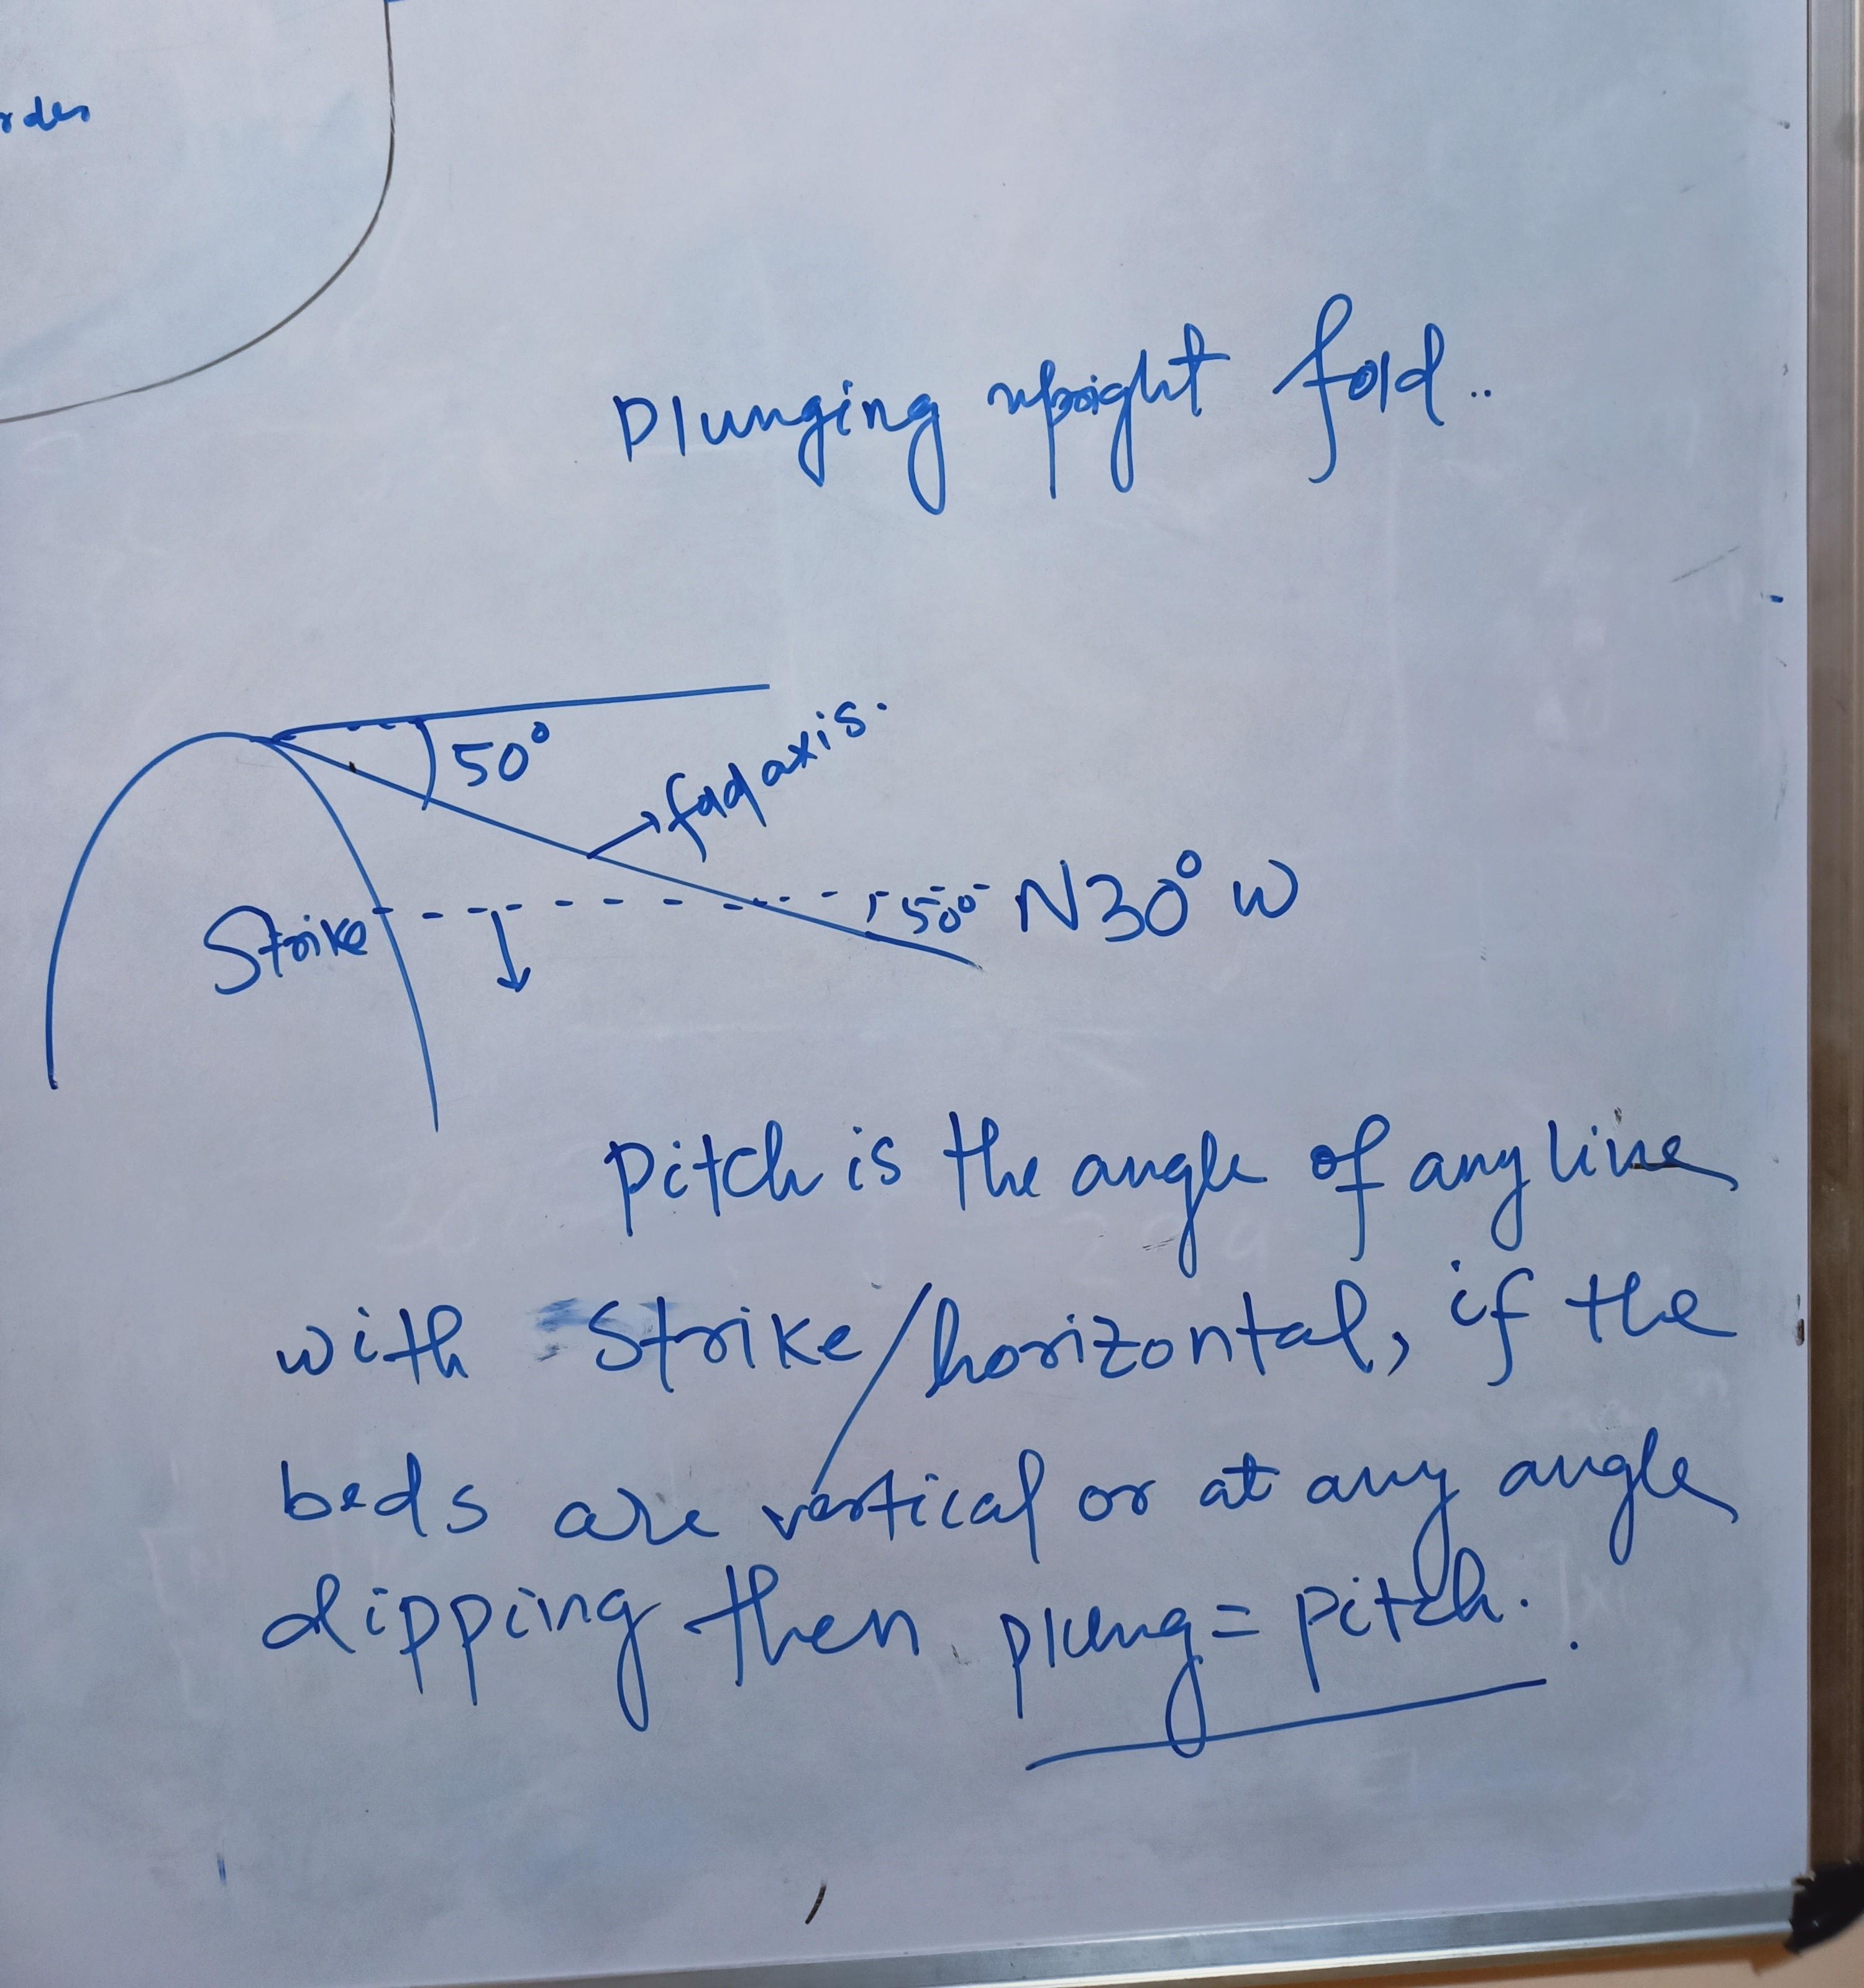 Plunging upright fold..
50°
fold axis.
Strike
50°
N30° W
pitch is the angle of any line
with strike/horizontal, if the
beds are vertical or at any angle
dipping then plung = pitch.